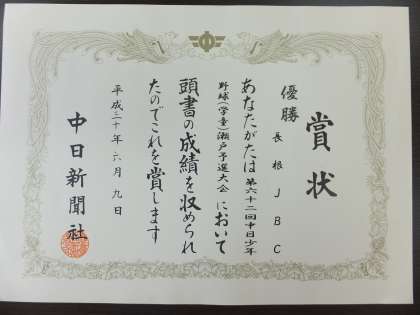 賞状
優勝
長根JBC
あなたがたは第六十二回中日少年
野球(学童)瀬戸予選大会において
頭書の成績を収められ
たのでこれを賞します
平成三十年六月九日
中日新聞社